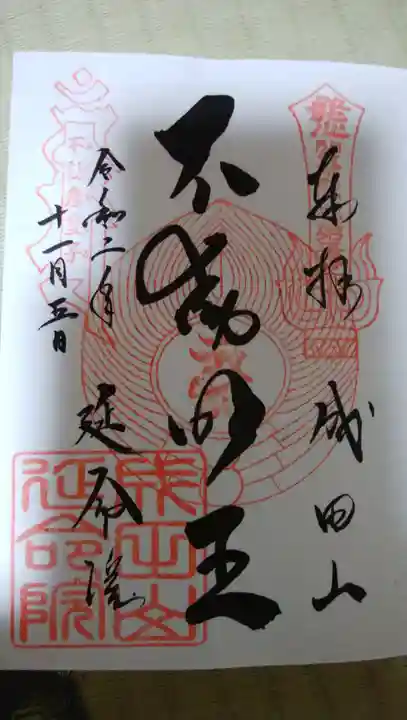 奉拝 成田山
不動明王
延命院
令和二年
十一月五日
成田山
延命院